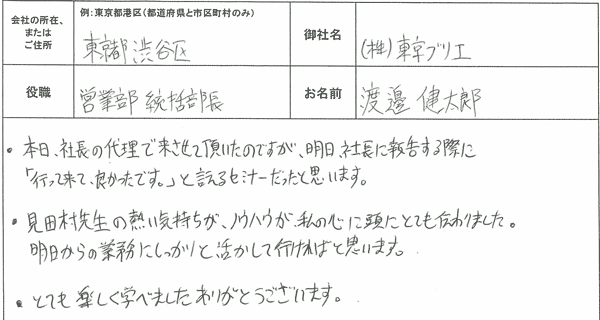 会社の所在、
または
ご住所
例:東京都港区(都道府県と市区町村のみ)
東京都 渋谷区
御社名
(株)東京ブリエ
役職
営業部 統括部長
お名前
渡邊 健太郎
・本日、社長の代理で来させて頂いたのですが、明日、社長に報告する際に
「行って来て、良かったです。」と言えるセミナーだったと思います。
・見田村先生の熱い気持ちが、ノウハウが、私の心に頭にとても伝わりました。
明日からの業務にしっかりと活かして行ければと思います。
・とても楽しく学べましたありがとうございます。